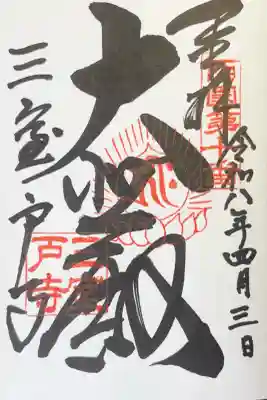 奉拝
令和八年四月三日
西國第十番
大悲殿
三室戸寺
三室戸寺